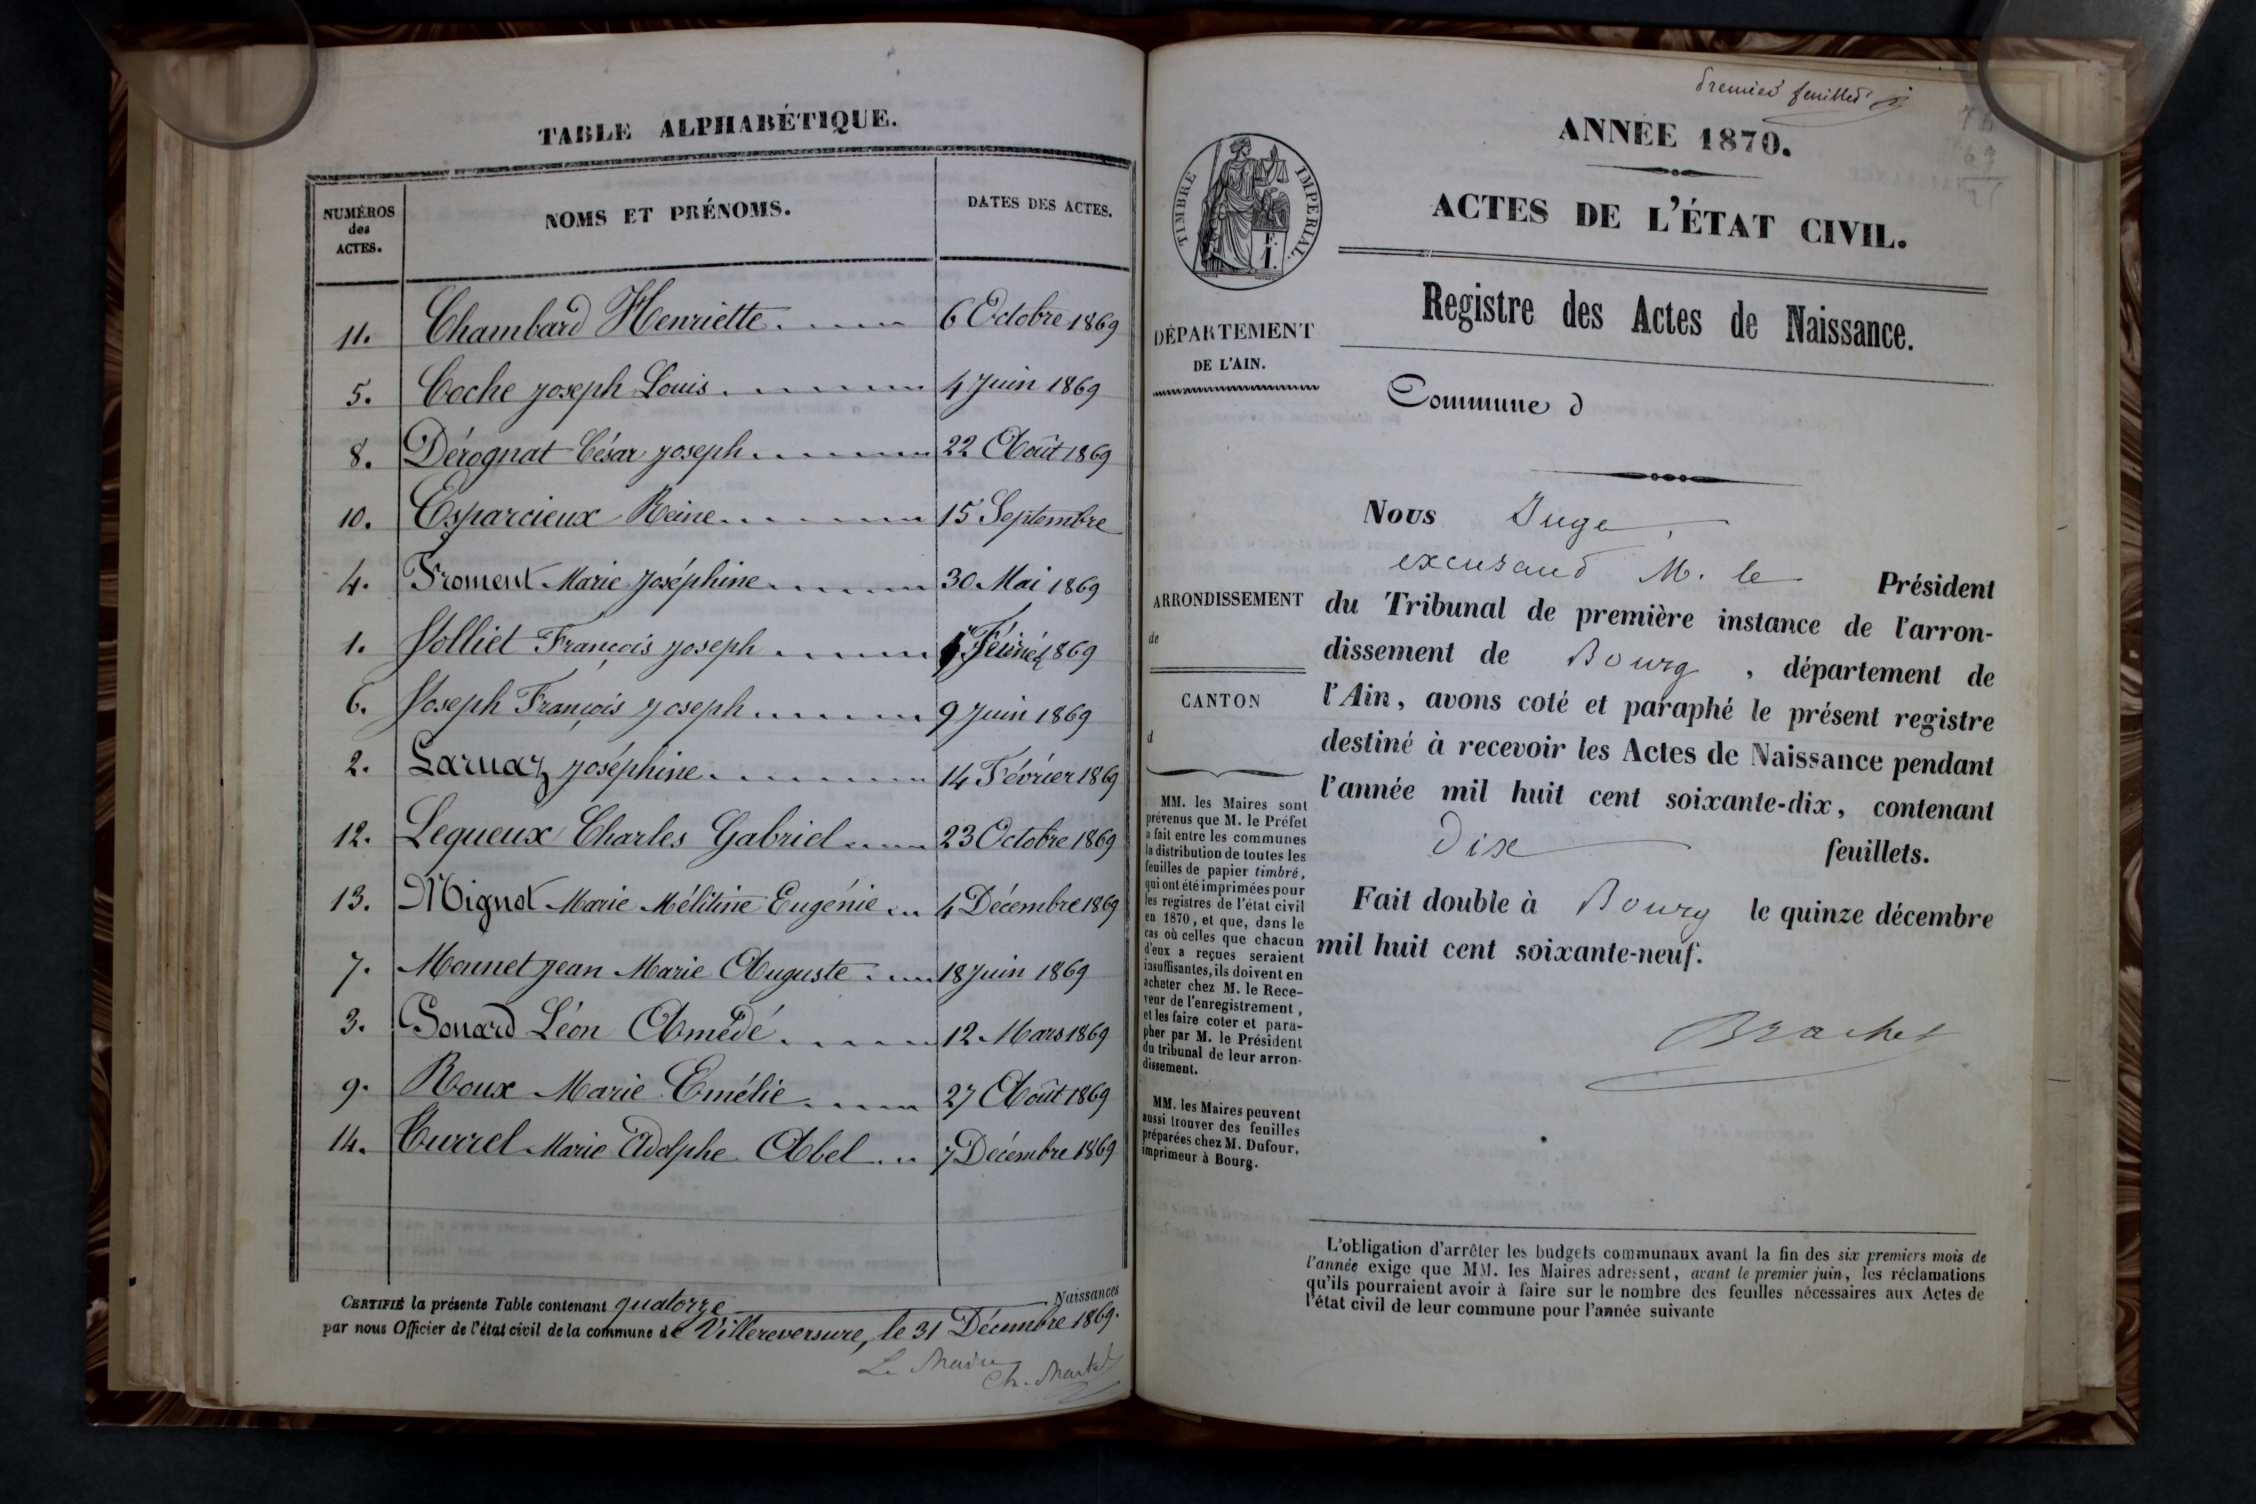 TABLE ALPHABÉTIQUE.
NUMÉROS
des
ACTES.
NOMS ET PRÉNOMS.
DATES DES ACTES.
11. Chambard Henriette 6 Octobre 1869
5. Coche Joseph Louis 4 Juin 1869
8. Dérognat César Joseph 22 Août 1869
10. Esparcieux Reine 15 Septembre
4. Froment Marie Joséphine 30 Mai 1869
1. Jolliet François Joseph Février 1869
6. Joseph François Joseph 9 Juin 1869
2. Larnaz Joséphine 14 Février 1869
12. Lequeux Charles Gabriel 23 Octobre 1869
13. Mignot Marie Mélitine Eugénie 4 Décembre 1869
7. Monnet Jean Marie Auguste 18 Juin 1869
3. Sonard Léon Amédé 12 Mars 1869
9. Roux Marie Emélie 27 Août 1869
14. Currel Marie Adolphe Abel 7 Décembre 1869
CERTIFIÉ la présente Table contenant quatorze Naissances
par nous Officier de l'état civil de la commune de Villereversure, le 31 Décembre 1869.
Le Maire
Ch. Martel
premier feuillet
ANNÉE 1870.
ACTES DE L'ÉTAT CIVIL.
TIMBRE IMPÉRIAL.
F.
1.
Registre des Actes de Naissance.
DÉPARTEMENT
DE L'AIN.
Commune d
ARRONDISSEMENT
de
CANTON
d
MM. les Maires sont
prévenus que M. le Préfet
a fait entre les communes
la distribution de toutes les
feuilles de papier timbré,
qui ont été imprimées pour
les registres de l'état civil
en 1870, et que, dans le
cas où celles que chacun
d'eux a reçues seraient
insuffisantes, ils doivent en
acheter chez M. le Rece-
veur de l'enregistrement,
et les faire coter et para-
pher par M. le Président
du tribunal de leur arron-
dissement.
MM. les Maires peuvent
aussi trouver des feuilles
préparées chez M. Dufour,
imprimeur à Bourg.
Nous Juge,
excusant M. le Président
du Tribunal de première instance de l'arron-
dissement de Bourg, département de
l'Ain, avons coté et paraphé le présent registre
destiné à recevoir les Actes de Naissance pendant
l'année mil huit cent soixante-dix, contenant
dix feuillets.
Fait double à Bourg le quinze décembre
mil huit cent soixante-neuf.
Brachet
L'obligation d'arrêter les budgets communaux avant la fin des six premiers mois de
l'année exige que MM. les Maires adressent, avant le premier juin, les réclamations
qu'ils pourraient avoir à faire sur le nombre des feuilles nécessaires aux Actes de
l'état civil de leur commune pour l'année suivante